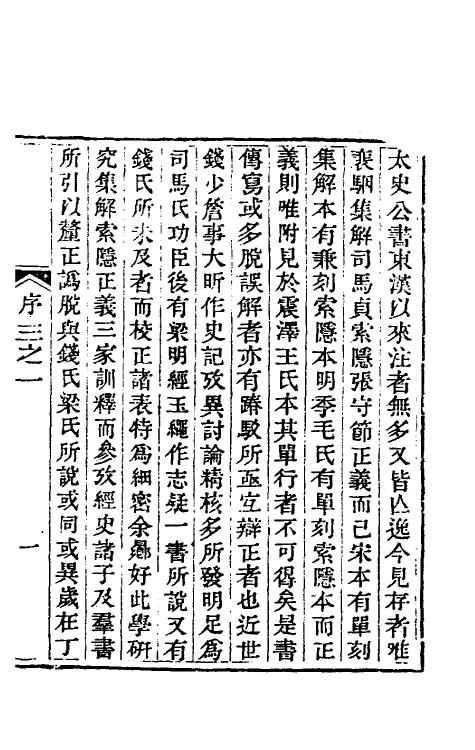 太史公書東漢以來注者無多又皆亾逸今見存者唯
裴駰集解司馬貞索隱張守節正義而已宋本有單刻
集解本有兼刻索隱本明季毛氏有單刻索隱本而正
義則唯附見於震澤王氏本其單行者不可得矣是書
傳寫或多脫誤解者亦有踳駮所亟宐辯正者也近世
錢少詹事大昕作史記攷異討論精核多所發明足爲
司馬氏功臣後有梁明經玉繩作志疑一書所說又有
錢氏所未及者而校正諸表特爲細密余曏好此學硏
究集解索隱正義三家訓釋而參攷經史諸子及羣書
所引以釐正譌脫與錢氏梁氏所說或同或異歲在丁
序三之一
一